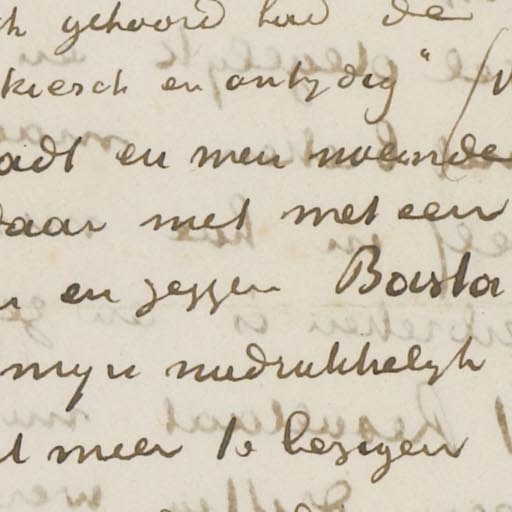 ch gehoord had de
kiesch en ontydig" (
adt en men noemde
daar met met een
n en zeggen Basta
myn nadrukkelyk
t meer te bezigen